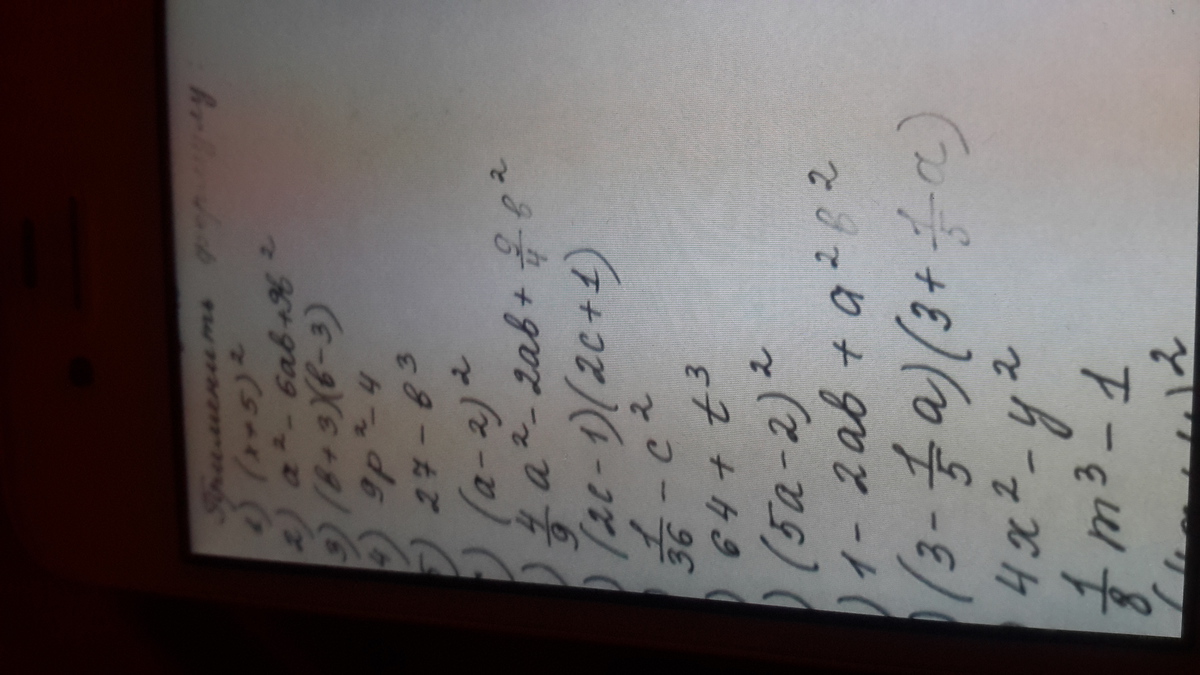 Применить формулу
1) (x+5)²
2) a² - 6ab + 9b²
3) (b+3)(b-3)
4) 9p² - 4
5) 27 - b³
) (a-2)²
) 4/9 a² - 2ab + 9/4 b²
) (2c-1)(2c+1)
) 1/36 - c²
) 64 + t³
) (5a-2)²
) 1 - 2ab + a²b²
) (3 - 1/5 a)(3 + 1/5 a)
) 4x² - y²
1/8 m³ - 1